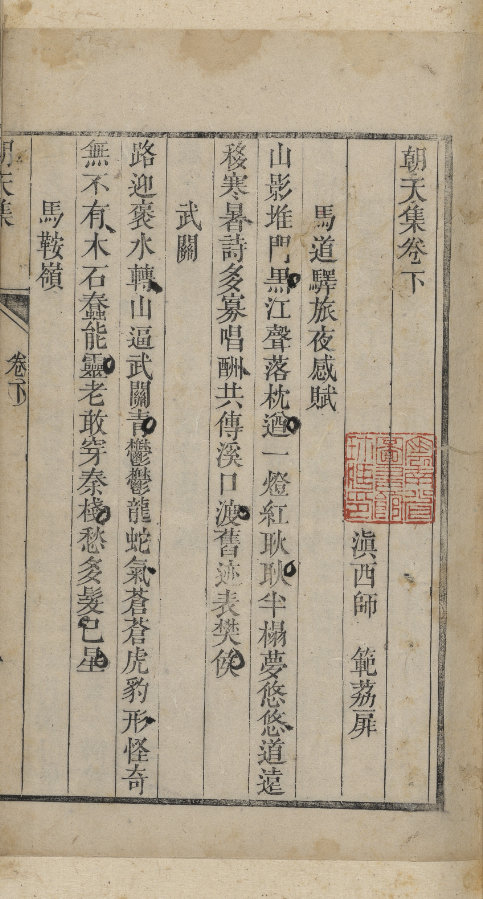 朝天集卷下
滇西師　範荔扉
馬道驛旅夜感賦
山影堆門黒江聲落枕遒一燈紅耿耿半榻夢悠悠道遠
移寒暑詩多寡唱酬共傳溪口渡舊迹表樊侯
武關
路迎褒水轉山逼武關青鬱鬱龍蛇氣蒼蒼虎豹形怪奇
無不有木石蠢能靈老敢穿秦棧愁多髮已星
馬鞍嶺
朝天集
卷下